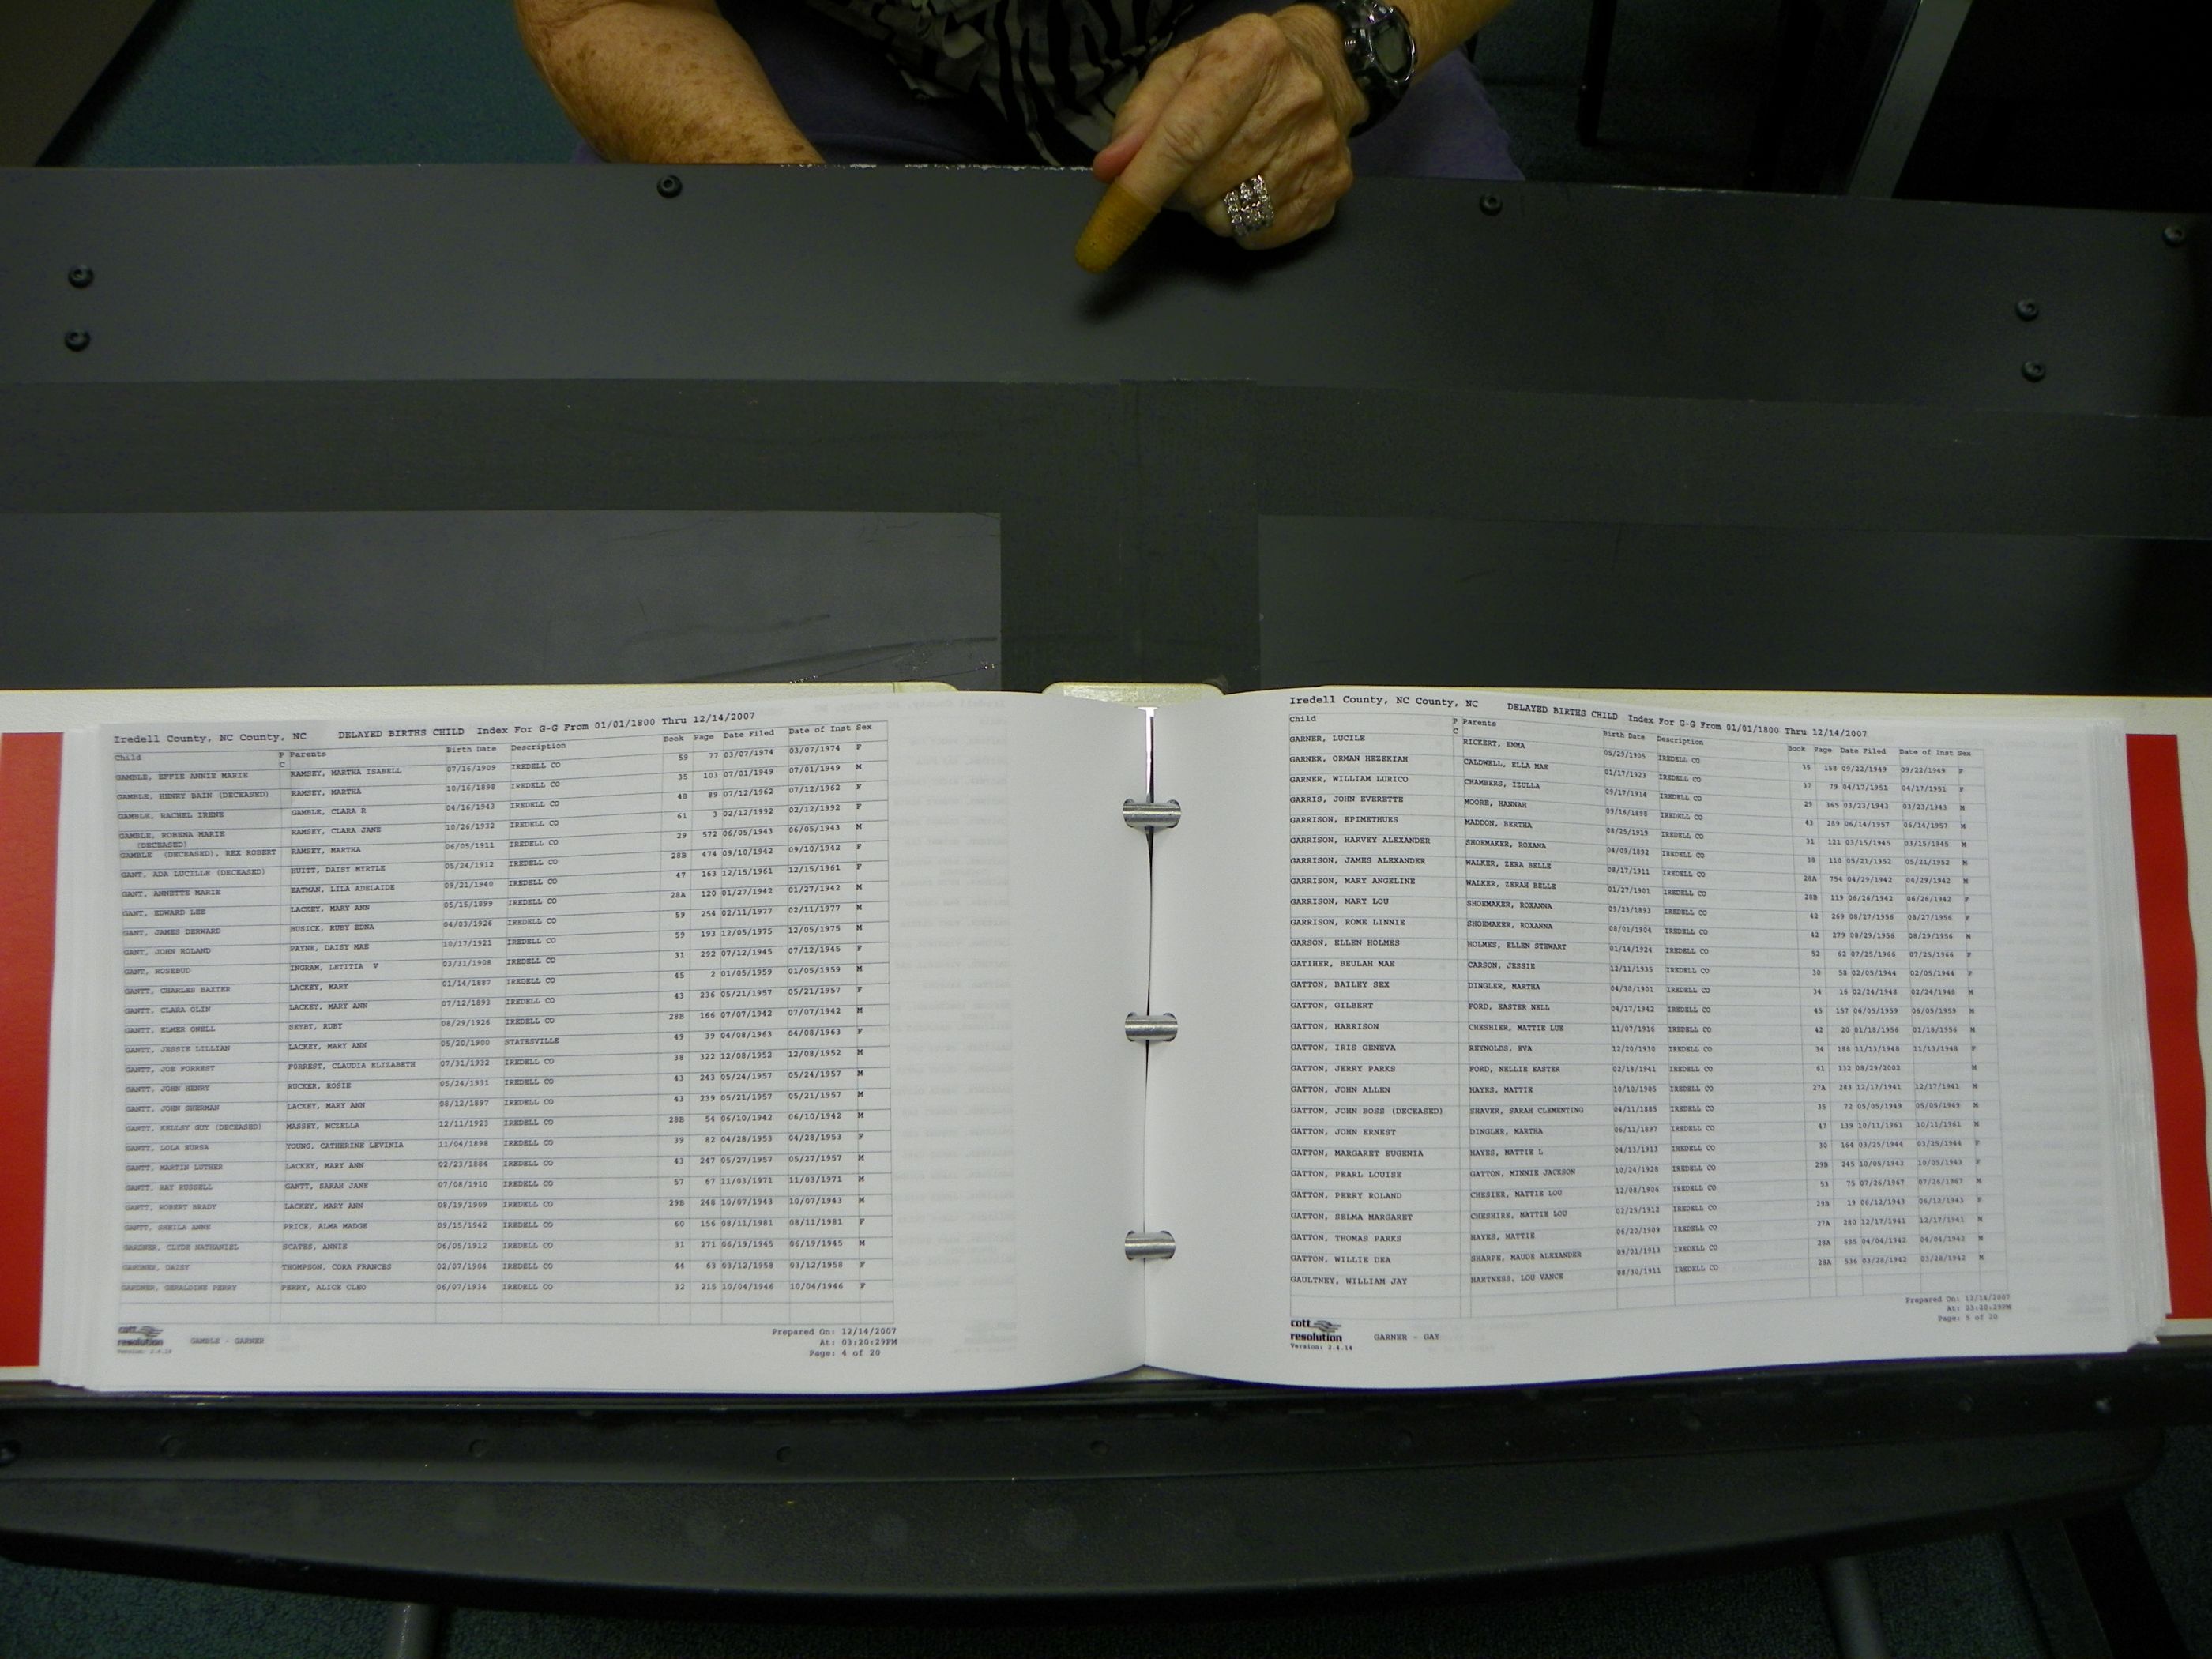 Iredell County, NC County, NC DELAYED BIRTHS CHILD Index For G-G From 01/01/1800 Thru 12/14/2007
Child P C Parents Birth Date Description Book Page Date Filed Date of Inst Sex
GAMBLE, EFFIE ANNIE MARIE RAMSEY, MARTHA ISABELL 07/16/1909 IREDELL CO 59 77 03/07/1974 03/07/1974 F
GAMBLE, HENRY BAIN (DECEASED) RAMSEY, MARTHA 10/16/1898 IREDELL CO 35 103 07/01/1949 07/01/1949 M
GAMBLE, RACHEL IRENE GAMBLE, CLARA R 04/16/1943 IREDELL CO 48 89 07/12/1962 07/12/1962 F
GAMBLE, ROBENA MARIE RAMSEY, CLARA JANE 10/26/1932 IREDELL CO 61 3 02/12/1992 02/12/1992 F
(DECEASED)
GAMBLE (DECEASED), REX ROBERT RAMSEY, MARTHA 06/05/1911 IREDELL CO 29 572 06/05/1943 06/05/1943 M
GANT, ADA LUCILLE (DECEASED) HUITT, DAISY MYRTLE 05/24/1912 IREDELL CO 28B 474 09/10/1942 09/10/1942 F
GANT, ANNETTE MARIE EATMAN, LILA ADELAIDE 09/21/1940 IREDELL CO 47 163 12/15/1961 12/15/1961 F
GANT, EDWARD LEE LACKEY, MARY ANN 05/15/1899 IREDELL CO 28A 120 01/27/1942 01/27/1942 M
GANT, JAMES DERWARD BUSICK, RUBY EDNA 04/03/1926 IREDELL CO 59 254 02/11/1977 02/11/1977 M
GANT, JOHN ROLAND PAYNE, DAISY MAE 10/17/1921 IREDELL CO 59 193 12/05/1975 12/05/1975 M
GANT, ROSEBUD INGRAM, LETITIA V 03/31/1908 IREDELL CO 31 292 07/12/1945 07/12/1945 F
GANTT, CHARLES BAXTER LACKEY, MARY 01/14/1887 IREDELL CO 45 2 01/05/1959 01/05/1959 M
GANTT, CLARA OLIN LACKEY, MARY ANN 07/12/1893 IREDELL CO 43 236 05/21/1957 05/21/1957 F
GANTT, ELMER ONELL SEYBT, RUBY 08/29/1926 IREDELL CO 28B 166 07/07/1942 07/07/1942 M
GANTT, JESSIE LILLIAN LACKEY, MARY ANN 05/20/1900 STATESVILLE 49 39 04/08/1963 04/08/1963 F
GANTT, JOE FORREST FORREST, CLAUDIA ELIZABETH 07/31/1932 IREDELL CO 38 322 12/08/1952 12/08/1952 M
GANTT, JOHN HENRY RUCKER, ROSIE 05/24/1931 IREDELL CO 43 243 05/24/1957 05/24/1957 M
GANTT, JOHN SHERMAN LACKEY, MARY ANN 08/12/1897 IREDELL CO 43 239 05/21/1957 05/21/1957 M
GANTT, KELLSY GUY (DECEASED) MASSEY, MCZELLA 12/11/1923 IREDELL CO 28B 54 06/10/1942 06/10/1942 M
GANTT, LOLA EURSA YOUNG, CATHERINE LEVINIA 11/04/1898 IREDELL CO 39 82 04/28/1953 04/28/1953 F
GANTT, MARTIN LUTHER LACKEY, MARY ANN 02/23/1884 IREDELL CO 43 247 05/27/1957 05/27/1957 M
GANTT, RAY RUSSELL GANTT, SARAH JANE 07/08/1910 IREDELL CO 57 67 11/03/1971 11/03/1971 M
GANTT, ROBERT BRADY LACKEY, MARY ANN 08/19/1909 IREDELL CO 29B 248 10/07/1943 10/07/1943 M
GANTT, SHEILA ANNE PRICE, ALMA MADGE 09/15/1942 IREDELL CO 60 156 08/11/1981 08/11/1981 F
GARDNER, CLYDE NATHANIEL SCATES, ANNIE 06/05/1912 IREDELL CO 31 271 06/19/1945 06/19/1945 M
GARDNER, DAISY THOMPSON, CORA FRANCES 02/07/1904 IREDELL CO 44 63 03/12/1958 03/12/1958 F
GARDNER, GERALDINE PERRY PERRY, ALICE CLEO 06/07/1934 IREDELL CO 32 215 10/04/1946 10/04/1946 F
cott resolution
Version: 2.4.14
GAMBLE - GARNER
Prepared On: 12/14/2007
At: 03:20:29PM
Page: 4 of 20
Iredell County, NC County, NC DELAYED BIRTHS CHILD Index For G-G From 01/01/1800 Thru 12/14/2007
Child P C Parents Birth Date Description Book Page Date Filed Date of Inst Sex
GARNER, LUCILE RICKERT, EMMA 05/29/1905 IREDELL CO 35 158 09/22/1949 09/22/1949 F
GARNER, ORMAN HEZEKIAH CALDWELL, ELLA MAE 01/17/1923 IREDELL CO 37 79 04/17/1951 04/17/1951 F
GARNER, WILLIAM LURICO CHAMBERS, IZULLA 09/17/1914 IREDELL CO 29 365 03/23/1943 03/23/1943 M
GARRIS, JOHN EVERETTE MOORE, HANNAH 09/16/1898 IREDELL CO 43 289 06/14/1957 06/14/1957 M
GARRISON, EPIMETHUES MADDON, BERTHA 08/25/1919 IREDELL CO 31 121 03/15/1945 03/15/1945 M
GARRISON, HARVEY ALEXANDER SHOEMAKER, ROXANA 04/09/1892 IREDELL CO 38 110 05/21/1952 05/21/1952 M
GARRISON, JAMES ALEXANDER WALKER, ZERA BELLE 08/17/1911 IREDELL CO 28A 754 04/29/1942 04/29/1942 M
GARRISON, MARY ANGELINE WALKER, ZERAH BELLE 01/27/1901 IREDELL CO 28B 119 06/26/1942 06/26/1942 F
GARRISON, MARY LOU SHOEMAKER, ROXANNA 09/23/1893 IREDELL CO 42 269 08/27/1956 08/27/1956 F
GARRISON, ROME LINNIE SHOEMAKER, ROXANNA 08/01/1904 IREDELL CO 42 279 08/29/1956 08/29/1956 M
GARSON, ELLEN HOLMES HOLMES, ELLEN STEWART 01/14/1924 IREDELL CO 52 62 07/25/1966 07/25/1966 F
GATIHER, BEULAH MAE CARSON, JESSIE 12/11/1935 IREDELL CO 30 58 02/05/1944 02/05/1944 F
GATTON, BAILEY SEX DINGLER, MARTHA 04/30/1901 IREDELL CO 34 16 02/24/1948 02/24/1948 M
GATTON, GILBERT FORD, EASTER NELL 04/17/1942 IREDELL CO 45 157 06/05/1959 06/05/1959 M
GATTON, HARRISON CHESHIER, MATTIE LUE 11/07/1916 IREDELL CO 42 20 01/18/1956 01/18/1956 M
GATTON, IRIS GENEVA REYNOLDS, EVA 12/20/1930 IREDELL CO 34 188 11/13/1948 11/13/1948 F
GATTON, JERRY PARKS FORD, NELLIE EASTER 02/18/1941 IREDELL CO 61 132 08/29/2002 M
GATTON, JOHN ALLEN HAYES, MATTIE 10/10/1905 IREDELL CO 27A 283 12/17/1941 12/17/1941 M
GATTON, JOHN BOSS (DECEASED) SHAVER, SARAH CLEMENTING 04/11/1885 IREDELL CO 35 72 05/05/1949 05/05/1949 M
GATTON, JOHN ERNEST DINGLER, MARTHA 06/11/1897 IREDELL CO 47 139 10/11/1961 10/11/1961 M
GATTON, MARGARET EUGENIA HAYES, MATTIE L 04/13/1913 IREDELL CO 30 164 03/25/1944 03/25/1944 F
GATTON, PEARL LOUISE GATTON, MINNIE JACKSON 10/24/1928 IREDELL CO 29B 245 10/05/1943 10/05/1943 F
GATTON, PERRY ROLAND CHESIER, MATTIE LOU 12/08/1906 IREDELL CO 53 75 07/26/1967 07/26/1967 M
GATTON, SELMA MARGARET CHESHIRE, MATTIE LOU 02/25/1912 IREDELL CO 29B 19 06/12/1943 06/12/1943 F
GATTON, THOMAS PARKS HAYES, MATTIE 06/20/1909 IREDELL CO 27A 280 12/17/1941 12/17/1941 M
GATTON, WILLIE DEA SHARPE, MAUDE ALEXANDER 09/01/1913 IREDELL CO 28A 585 04/04/1942 04/04/1942 M
GAULTNEY, WILLIAM JAY HARTNESS, LOU VANCE 08/30/1911 IREDELL CO 28A 536 03/28/1942 03/28/1942 M
cott resolution
Version: 2.4.14
GARNER - GAY
Prepared On: 12/14/2007
At: 03:20:29PM
Page: 5 of 20